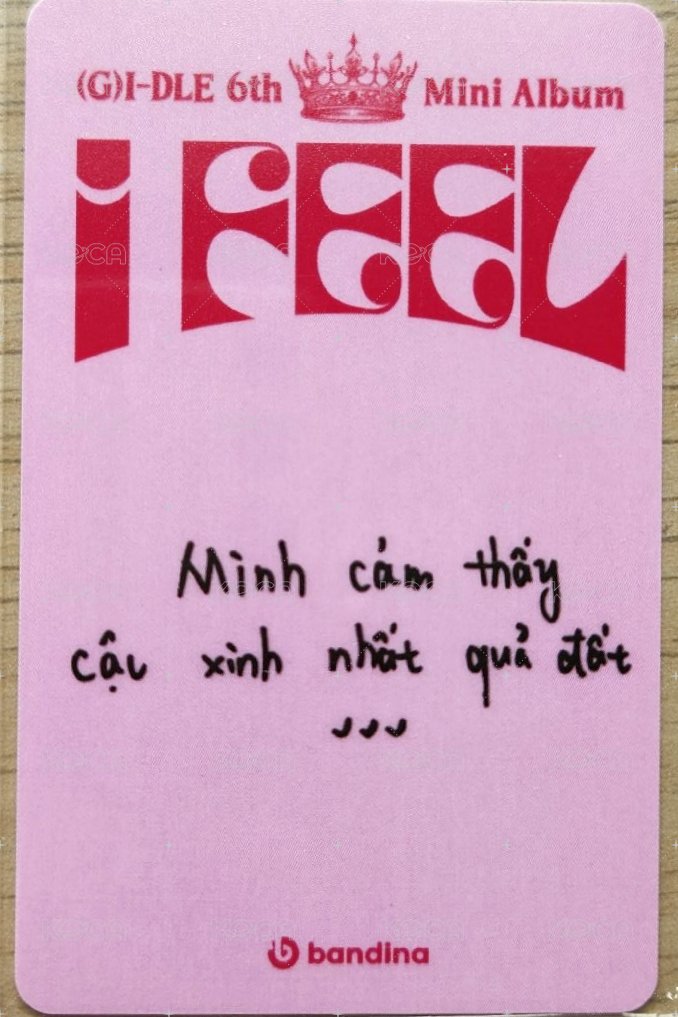 (G)I-DLE 6th Mini Album
I FEEL
Mình cảm thấy
cậu xinh nhất quả đất
bandina